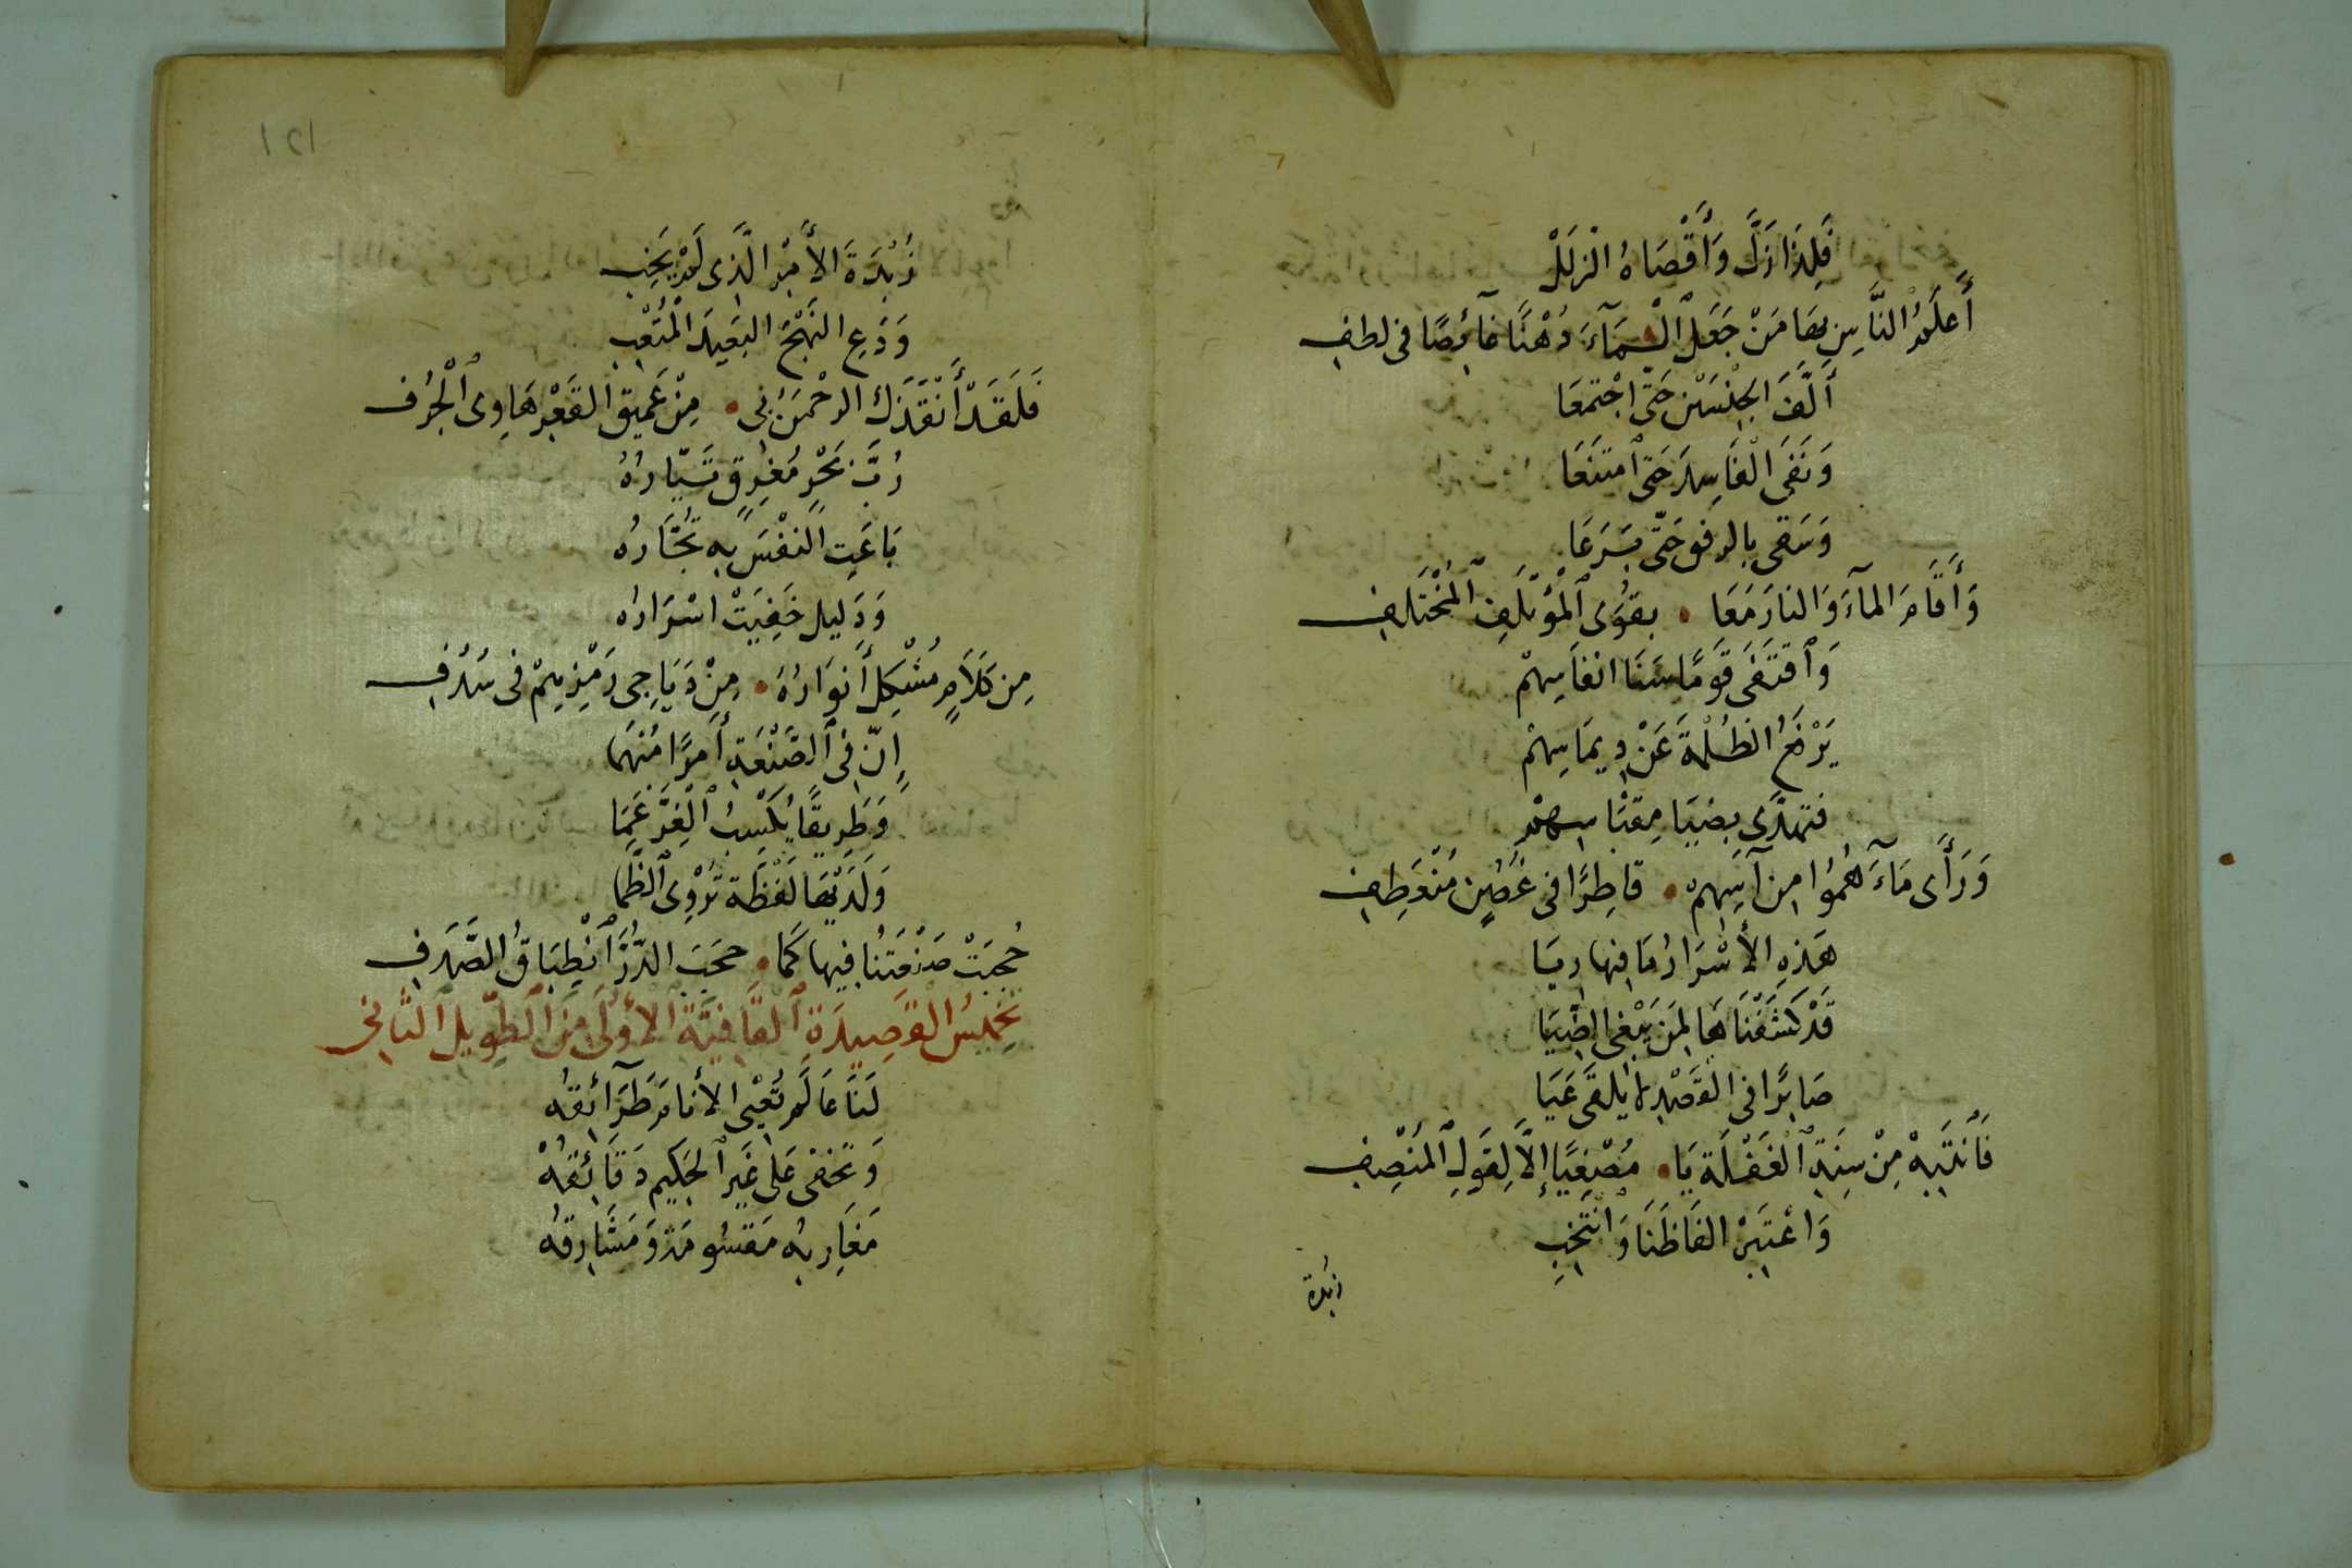 فَلِهَذَا زَلَّ وَأَقْصَاهُ الْزَلَلْ
أَعْلَمُ النَّاسِ بِهَا مَنْ جَعَلَ ٱلْسَّمَآءَ دُهْنًا غَآئِصًا فى لطفِ
أَلَّفَ الجِنْسَيْنِ حَتّى اجْتَمَعَا
وَنَفَى الْفَاسِدَ حَتّى ٱمتنَعَا
وَسَقى بالرفق حَتّى
وَأَقَامَ المآءَ وَالنارَ مَعَا • بِقُوَى ٱلْمُؤْتَلِفِ ٱلْمُخْتَلِفِ
وَٱقتَفَى قَوْمًا سَنَا انفَاسِهِمْ
يَرْفَعُ الظُلْمَةَ عَنْ دِيمَاسِهِمْ
فتهتدِى بِضِيَا مِقبَاسِهِمْ
وَرَأَى مَآءَ هُمُوا مِن آسِهِم • قاطِرًا فى غُصُنٍ مُنْعَطِفِ
هَذِهِ الأَسْرَارُ مَا فِيهَا رِيَا
قَدْ كَشَفْنَاهَا لِمَن يَبْغِى الضِيَا
صَابِرًا فى الْقَصْدِ لا يَلقَى عَيَا
فَٱنْتَبِهْ مِنْ سِنَةِ ٱلْغَفْلَةِ يَا • مُصْغِيًا إِلَّا لِقَولِ ٱلْمُنْصِفِ
وَاعْتَبِرْ الفَاظَنَا وَانْتَخِبِ
زبدة
١٢١
زُبْدَةَ الأَمْرِ الَّذِى لَمْ يَخِبِ
وَدَعِ النَهْجَ البَعِيدَ الْمُتْعِبِ
فَلَقَدْ أَنْقَذَكَ الرحْمَنُ بِى • مِنْ عَمِيقِ القَعْرِ هَاوِى ٱلْجُرُفِ
رُبَّ بَحْرٍ مُغرِقٍ تَيَّارُهُ
بَاعَتِ النفْسَ بِهِ تُجَّارُهُ
وَدَلِيلٍ خَفِيَتْ اسْرَارُه
مِن كَلَامٍ مُشْكِلٍ أَنوَارُهُ • مِنْ دَيَاجِى رَمْزِهِمْ فى سُدَفِ
إِنّ فِى ٱلصَّنْعَةِ أَمرًا مُبْهَمَا
وَطَرِيقًا يُكْسِبُ ٱلْغِرَّ عَمَا
وَلَدَيْهَا لَفظَة تُرْوِى ٱلظَّمَا
حُجِبَتْ صَنْعَتُنَا فِيهَا كَمَا • حَجَبَ الدُّرَّ ٱنْطِبَاقُ الصَّدَفِ
تخمِيسُ القَصِيدَةِ ٱلقَافِيَّةِ ٱلأُولَى مِنَ ٱلطَّوِيلِ ٱلثَّانِى
لَنَا عَالَم تُعْيِى الأَنَامَ طَرَآئِقُه
وَتخفى عَلى غَيرِ ٱلحَكِيمِ دَقَائِقُهْ
مَغَارِبُه مَقسُومَة وَمَشَارِقُه